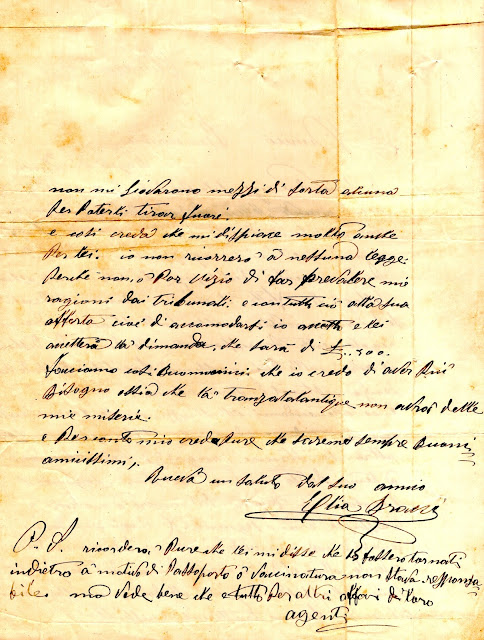 non mi Giovarono mezzi di sorta alcuna
Per Poterli tirar fuori.
e così creda che mi dispiace molto anche
Per lei. io non ricorrerò a nessuna legge.
Perche non ò Por Vizio di far prevalere mie
ragioni dai tribunali. e con tutto ciò alla sua
offerta cioè di accomodarsi io accetto e lei
accetterà la dimanda, che sarà di £. 300.
facciamo così Buonamici. che io credo di aver Più
Bisogno essia che la tranzatalantique non avrà delle
mie miserie.
e Per conto mio creda Pure che saremo sempre Buoni
amicissimi,.
Riceva un saluto dal suo amico
Elia
P. S. ricorderà Pure che lei mi disse che se fossero tornati
indietro à motivo di Passaporto ò Vaccinatura non stava responza
bile. ma vede bene che è tutto Per altri affari di loro
agenti